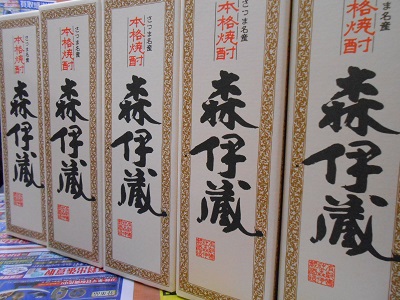 さつま名産
本格焼酎
森伊蔵
さつま名産
本格焼酎
森伊蔵
さつま名産
本格焼酎
森伊蔵
さつま名産
本格焼酎
森伊蔵
さつま名産
本格焼酎
森伊蔵